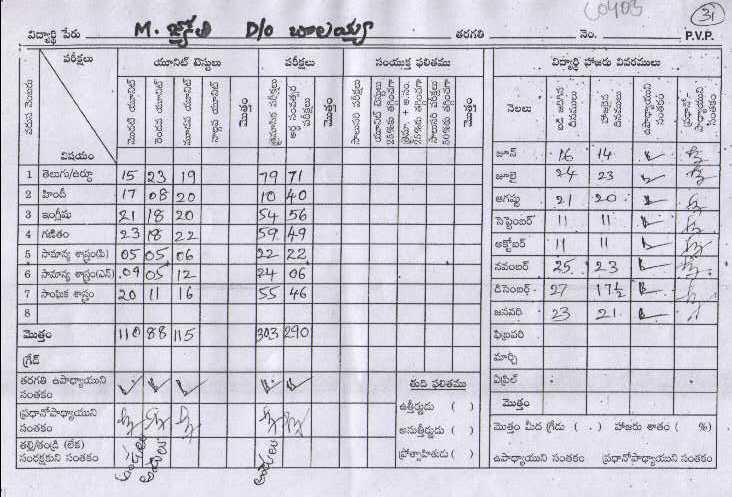 C0403
31
విద్యార్థి పేరు M. జ్యోతి D/o బాలయ్య తరగతి నెం. P.V.P.
వరుస నెంబరు పరీక్షలు విషయం యూనిట్ టెస్టులు పరీక్షలు సంయుక్త ఫలితము
మొదటి యూనిట్ రెండవ యూనిట్ మూడవ యూనిట్ నాల్గవ యూనిట్ మొత్తం త్రైమాసిక పరీక్షలు అర్ధ సంవత్సర పరీక్షలు మొత్తం
1 తెలుగు/ఉర్దూ 15 23 19 79 71
2 హిందీ 17 08 20 10 40
3 ఇంగ్లీషు 21 18 20 54 56
4 గణితం 23 18 22 59 49
5 సామాన్య శాస్త్రం(పి) 05 05 06 22 22
6 సామాన్య శాస్త్రం(ఎన్) 09 05 12 24 06
7 సాంఘిక శాస్త్రం 20 11 16 55 46
8
మొత్తం 110 88 115 303 290
గ్రేడ్
తరగతి ఉపాధ్యాయుని సంతకం
ప్రధానోపాధ్యాయుని సంతకం
తల్లి/తండ్రి (లేక) సంరక్షకుని సంతకం
తుది ఫలితము
ఉత్తీర్ణుడు ( )
అనుత్తీర్ణుడు ( )
ప్రోత్సాహితుడు ( )
విద్యార్థి హాజరు వివరములు
నెలలు బడి జరిగిన దినములు హాజరైన దినములు ఉపాధ్యాయుని సంతకం ప్రధానోపాధ్యాయుని సంతకం
జూన్ 16 14
జూలై 24 23
ఆగష్టు 21 20
సెప్టెంబర్ 11 11
అక్టోబర్ 11 11
నవంబర్ 25 23
డిసెంబర్ 27 17½
జనవరి 23 21
ఫిబ్రవరి
మార్చి
ఏప్రిల్
మొత్తం
మొత్తం మీద గ్రేడు ( . ) హాజరు శాతం ( %)
ఉపాధ్యాయుని సంతకం ప్రధానోపాధ్యాయుని సంతకం